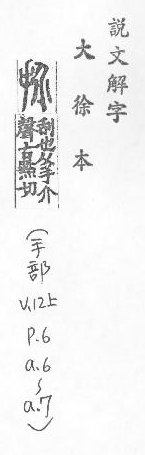 説文解字
大徐本
刮也从手介
聲古黠切
(手部
V.12上
P.6
a.6
~
a.7)